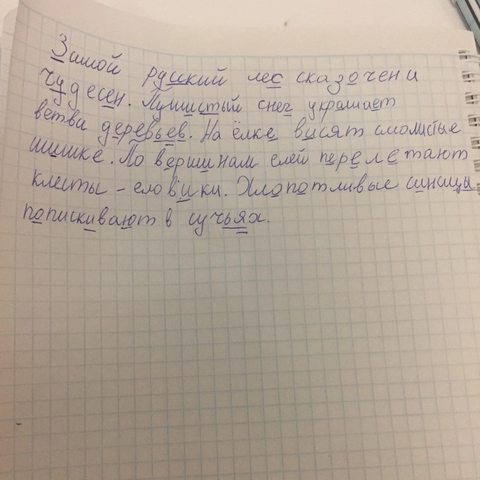 Зимой русский лес сказочен и
чудесен. Пушистый снег украшает
ветви деревьев. На ёлке висят смолистые
шишке. По вершинам елей перелетают
клесты - еловики. Хлопотливые синицы
попискивают в сучьях.